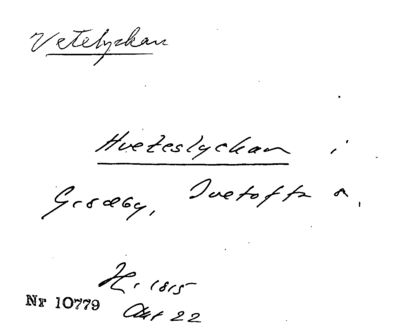 Vetelyckan
Hveteslyckan i
Gisseby, Tvetofta s,
H. 1815
Akt 22
Nr 10779